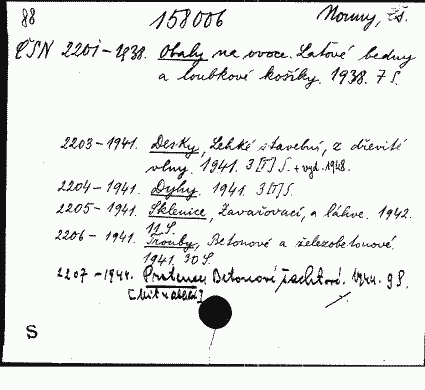 88 158006 Normy, čs.
ČSN 2201-1938. Obaly na ovoce. Laťové bedny
a loubkové košíky. 1938. 7 S.
2203-1941. Desky, Lehké stavební, z dřevité
vlny. 1941. 3 [I] S. + vyd. 1948.
2204-1941. Dýhy. 1941. 3 [I] S.
2205-1941. Sklenice, Zavařovací, a láhve. 1942.
11 S.
2206-1941. Trouby, Betonové a železobetonové.
1941. 30 S.
2207-1944. Betonové šachtové. 1944. 9 S.
S